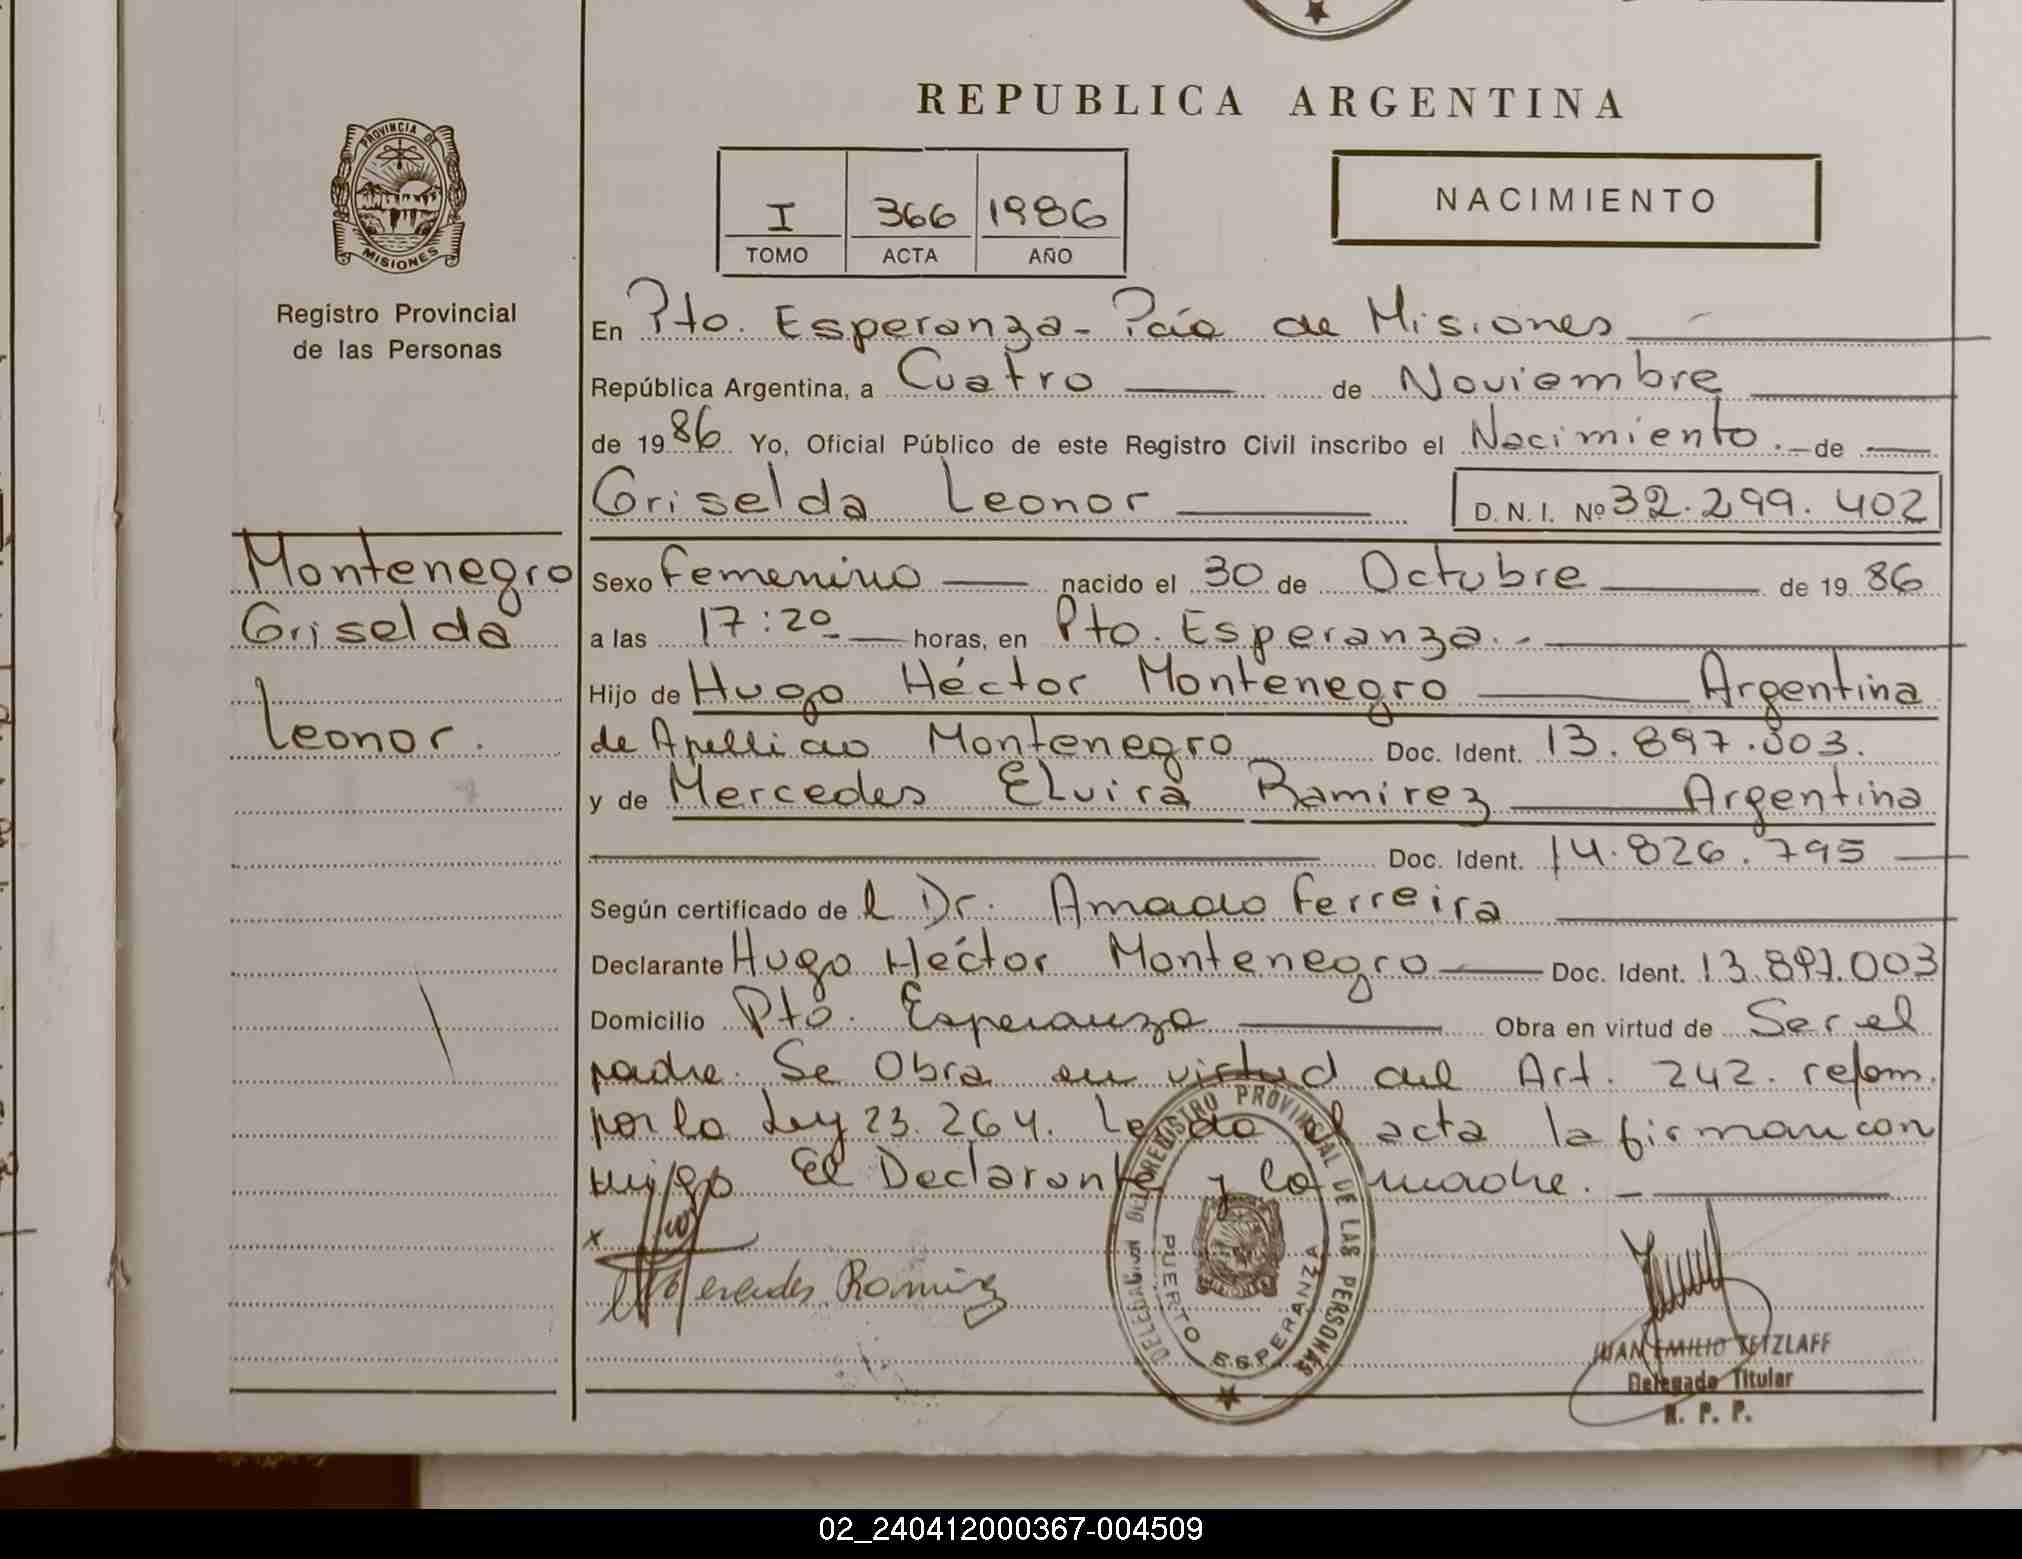 REPUBLICA ARGENTINA
PROVINCIA DE
MISIONES
Registro Provincial
de las Personas
I 366 1986
TOMO ACTA AÑO
NACIMIENTO
En Pto. Esperanza - Pcia de Misiones
República Argentina, a Cuatro de Noviembre
de 1986 Yo, Oficial Público de este Registro Civil inscribo el Nacimiento. de
Griselda Leonor D.N.I. Nº 32.299.402
Montenegro
Griselda
Leonor.
Sexo Femenino nacido el 30 de Octubre de 1986
a las 17:20 horas, en Pto. Esperanza.-
Hijo de Hugo Héctor Montenegro Argentina
de Apellido Montenegro Doc. Ident. 13.897.003.
y de Mercedes Elvira Ramirez Argentina
Doc. Ident. 14.826.795
Según certificado del Dr. Amado Ferreira
Declarante Hugo Héctor Montenegro Doc. Ident. 13.897.003
Domicilio Pto. Esperanza Obra en virtud de Ser el
padre. Se Obra en virtud del Art. 242. reform.
por la Ley 23.264. Leida el acta la firman con
migo El Declarante y la madre. -
x
Mercedes Ramirez
DELEGACION DEL REGISTRO PROVINCIAL DE LAS PERSONAS
PUERTO ESPERANZA
JUAN EMILIO TETZLAFF
Delegado Titular
R. P. P.
02_240412000367-004509